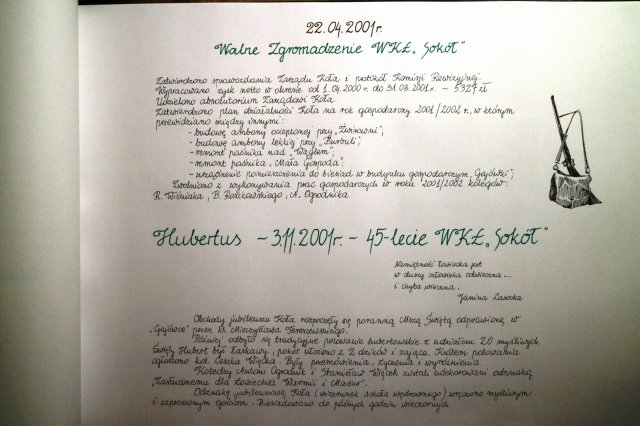 22.04.2001r.
Walne Zgromadzenie WKŁ „Sokół”
Zatwierdzono sprawozdania Zarządu Koła i protokół Komisji Rewizyjnej.
Wypracowano zysk netto w okresie od 1.04.2000 r. do 31.03.2001 r. – 5327 zł.
Udzielono absolutorium Zarządowi Koła.
Zatwierdzono plan działalności Koła na rok gospodarczy 2001/2002 r., w którym
przewidziano między innymi:
- budowę ambony ocieplonej przy „Żwirowni”;
- budowę ambony lekkiej przy
- remont paśnika nad „Węglem”;
- remont paśnika „Mała Gospoda”;
- urządzenie pomieszczenia do biesiad w budynku gospodarczym „Gajówki”;
Zwolniono z wykonywania prac gospodarczych w roku 2001/2002 kolegów:
R. Wiśniaka, B. Roszkowskiego, A. Ogrodnika
Hubertus ~ 3.11.2001r. ~ 45-lecie WKŁ „Sokół”
Namiętność łowiecka jest
w duszy człowieka odwieczna...
i chyba wieczna.
Janina Lasocka
Obchody jubileuszu Koła rozpoczęły się poranną Mszą Świętą odprawioną w
„Gajówce” przez ks. Mieczysława
Później odbyło się tradycyjne polowanie hubertowskie z udziałem 20 myśliwych.
Święty Hubert był łaskawy, pokot ułożono z 2 dzików i zająca. Królem polowania
ogłoszono kol. Leszka Więcka. Były przemówienia, życzenia i wyróżnienia.
Koledzy Antoni Ogrodnik i Stanisław Więcek zostali udekorowani odznaką
„Zasłużonemu dla Łowiectwa Warmii i Mazur”.
Odznakę jubileuszową Koła (wizerunek sokoła wędrownego) wręczono myśliwym
i zaproszonym gościom. Biesiadowano do późnych godzin wieczornych.